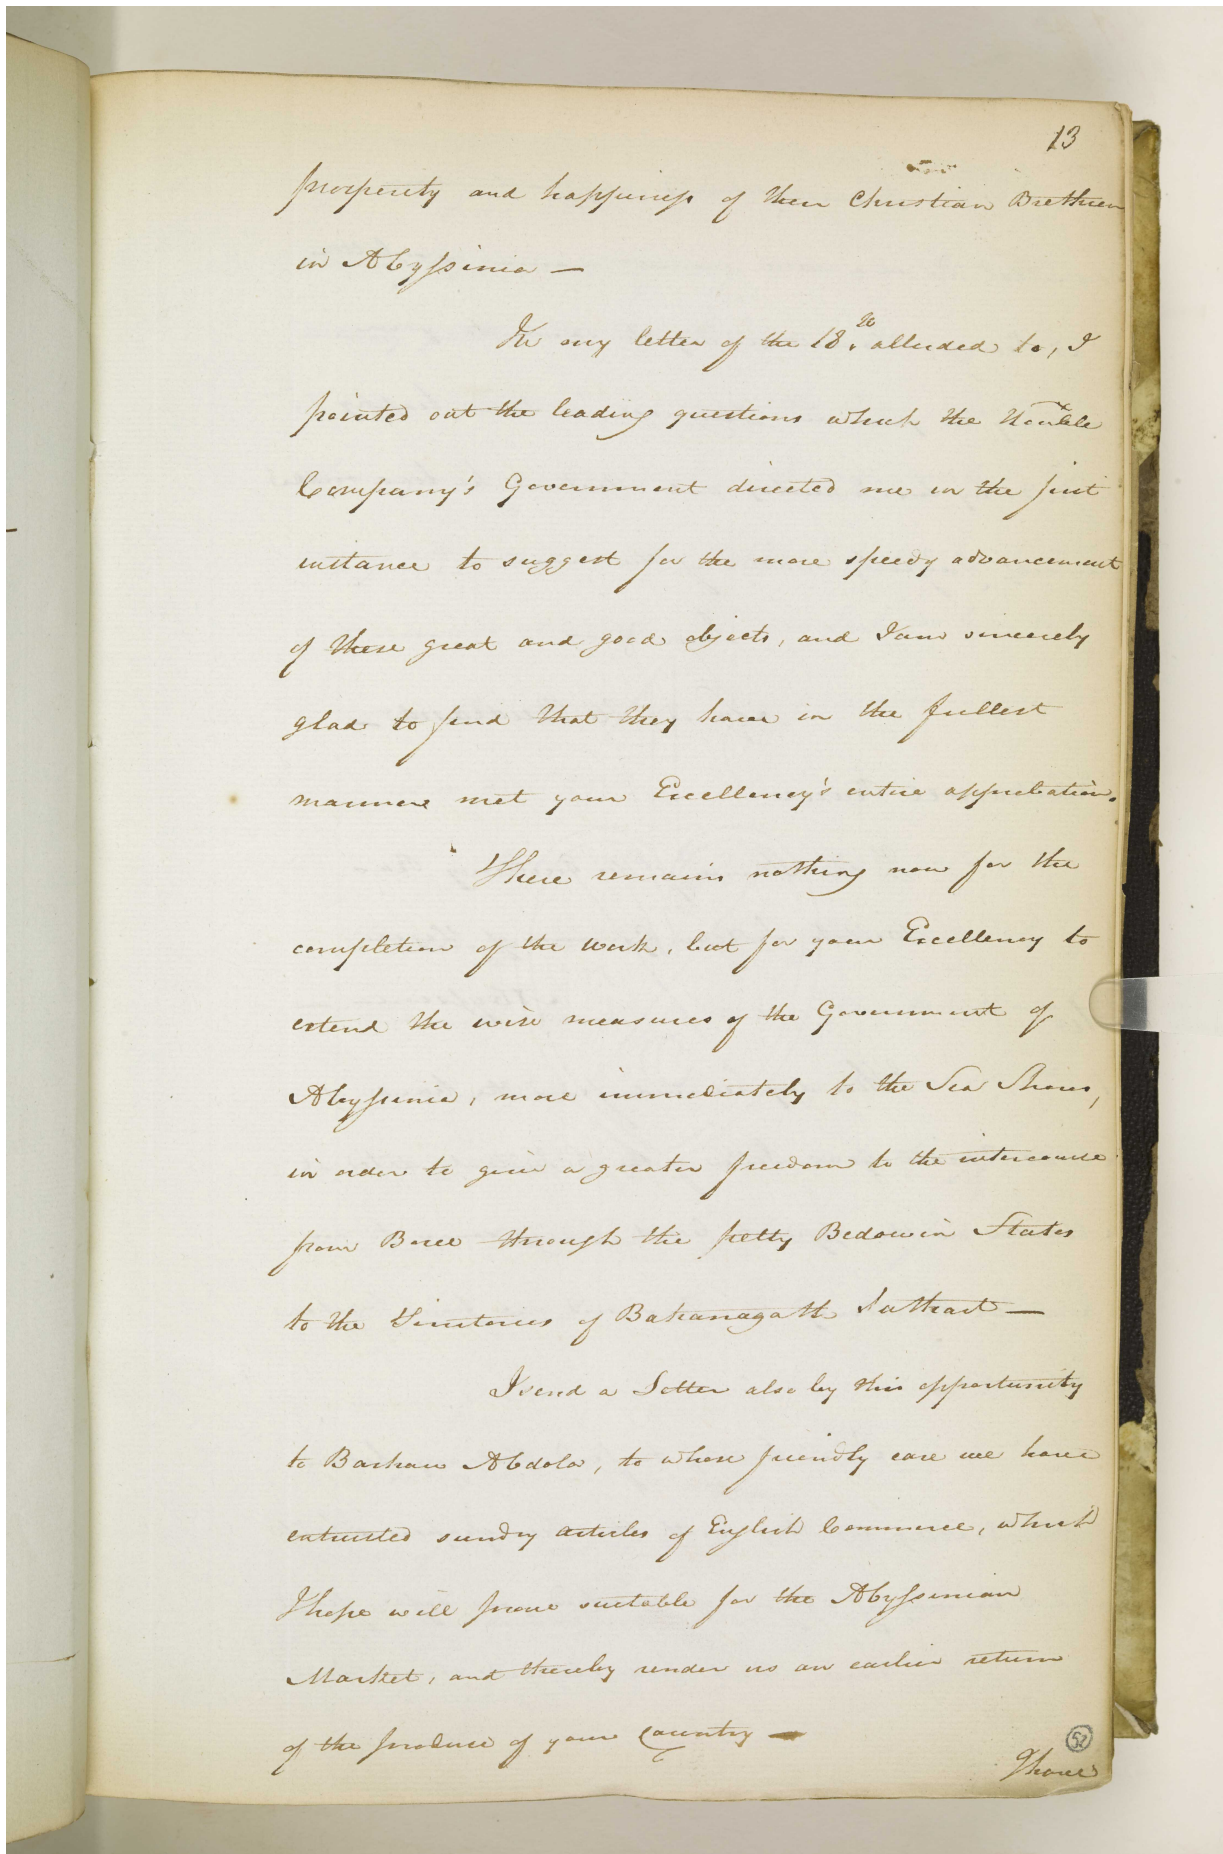 13
prosperity and happiness of their Christian Brethren
in Abyssinia —
In my letter of the 18.th alluded to, I
pointed out the leading questions which the Honble
Company's Government directed me in the first
instance to suggest for the more speedy advancement
of these great and good objects, and I am sincerely
glad to find that they have in the fullest
manner met your Excellency's entire approbation.
There remains nothing now for the
completion of the work, but for your Excellency to
extend the wise measures of the Government of
Abyssinia, more immediately to the Sea Shores,
in order to give a greater freedom to the intercourse
from Buree through the petty Bedowin States
to the Territories of Bahanagash
I send a Letter also by this opportunity
to Bashaw Abdola, to whose friendly care we have
entrusted sundry articles of English Commerce, which
I hope will prove suitable for the Abyssinian
Market, and thereby render us an earlier return
of the produce of your Country —
52
I have